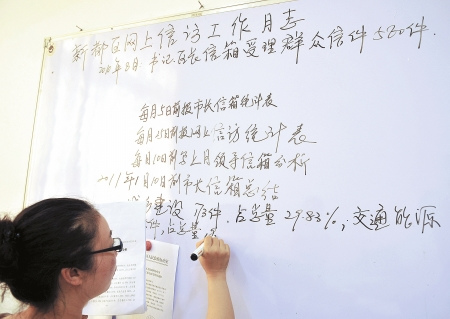 新都区网上信访工作月志
书记区长信箱受理群众信件580件.
每月5日前报市长信箱统计表
每月25日前报网上信访统计表
每月10日前写上月领导信箱分析
2011年1月10日前市长信箱总结
建设 173件.占总量29.83%;交通能源
件,占总量